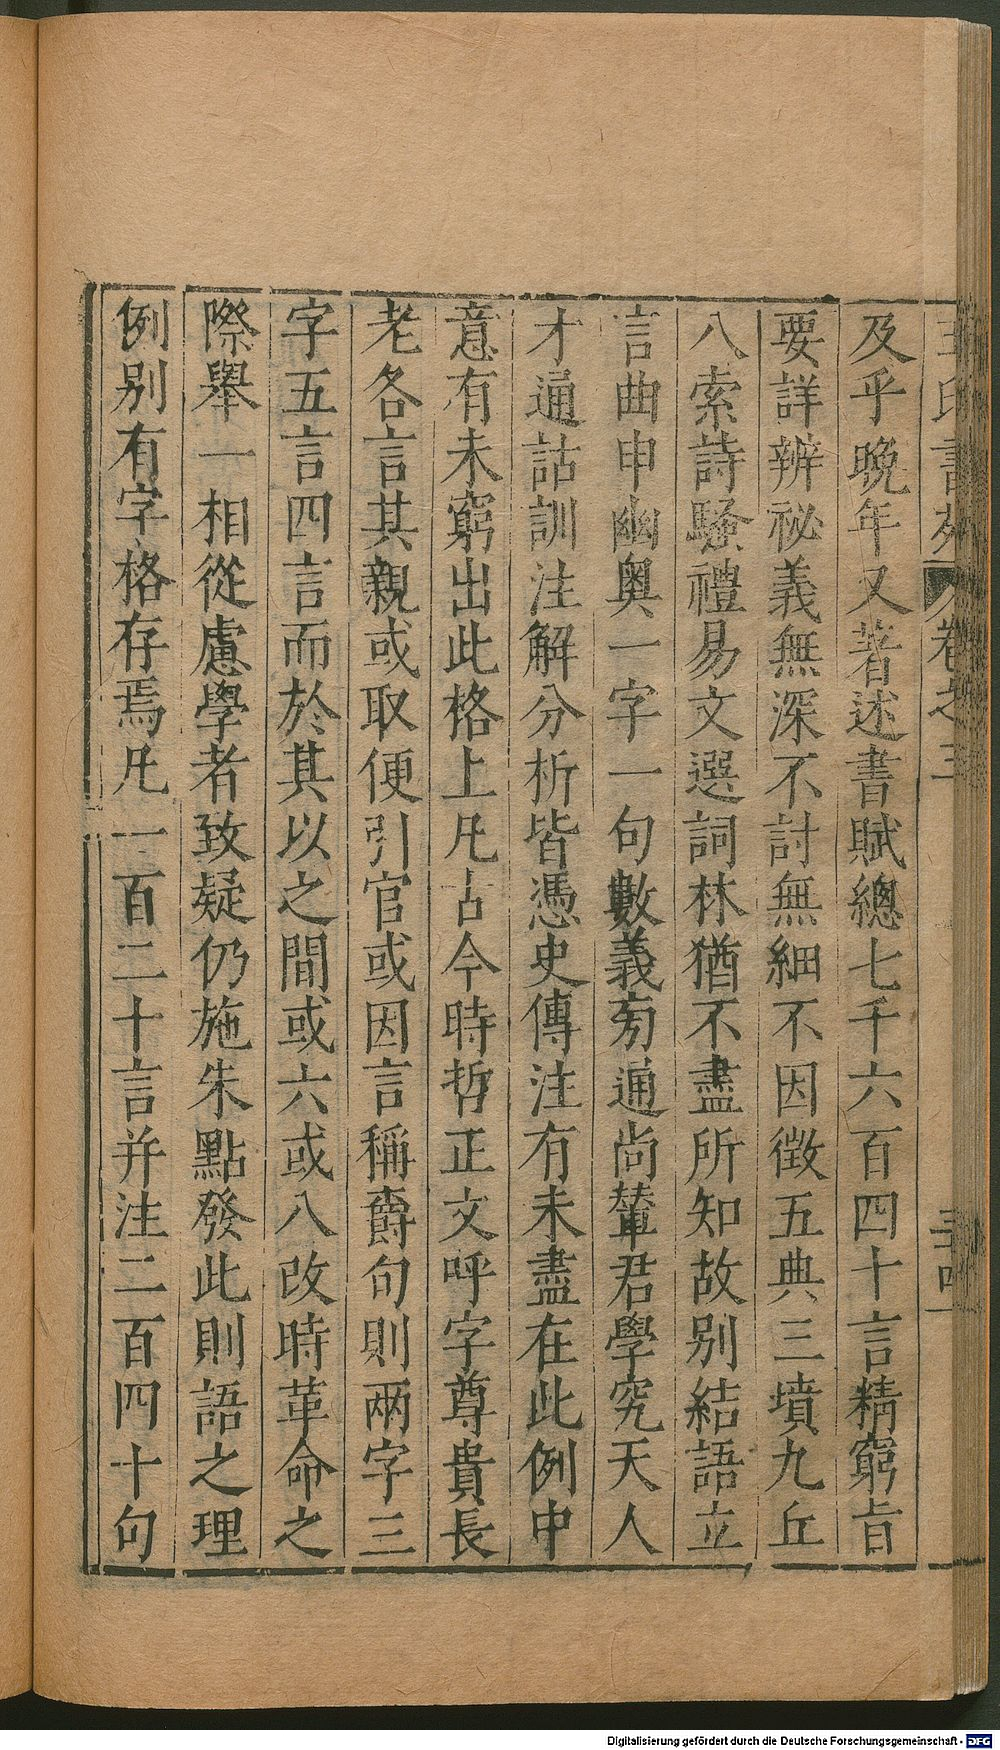 及乎晚年又著述書賦總七千六百四十言精窮旨
要詳辨祕義無深不討無細不因徵五典三墳九丘
八索詩騷禮易文選詞林猶不盡所知故别結語立
言曲申幽奧一字一句數義旁通尚輦君學究天人
才通詁訓注解分析皆憑史傳注有未盡在此例中
意有未窮出此格上凡古今時哲正文呼字尊貴長
老各言其親或取便引官或因言稱爵句則兩字三
字五言四言而於其以之間或六或八改時革命之
際舉一相從慮學者致疑仍施朱點發此則語之理
例别有字格存焉凡一百二十言并注二百四十句
卷之三
Digitalisierung gefördert durch die Deutsche Forschungsgemeinschaft - DFG